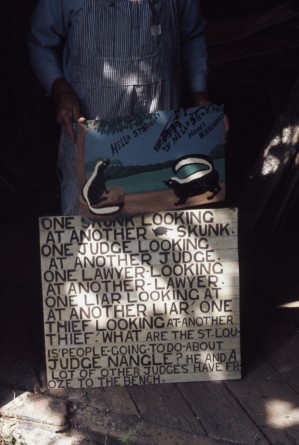 HELLO STINKY
HOWS
BUSINESS
ONE SKUNK LOOKING
AT ANOTHER SKUNK.
ONE JUDGE LOOKING
AT ANOTHER JUDGE.
ONE LAWYER-LOOKING
AT ANOTHER-LAWYER.
ONE LIAR LOOKING AT
AT ANOTHER LIAR. ONE
THIEF LOOKING AT-ANOTHER
THIEF. WHAT ARE THE ST. LOU-
IS PEOPLE-GOING-TO-DO-ABOUT
JUDGE NANGLE? HE AND A
LOT OF OTHER JUDGES HAVE FR-
OZE TO THE BENCH.